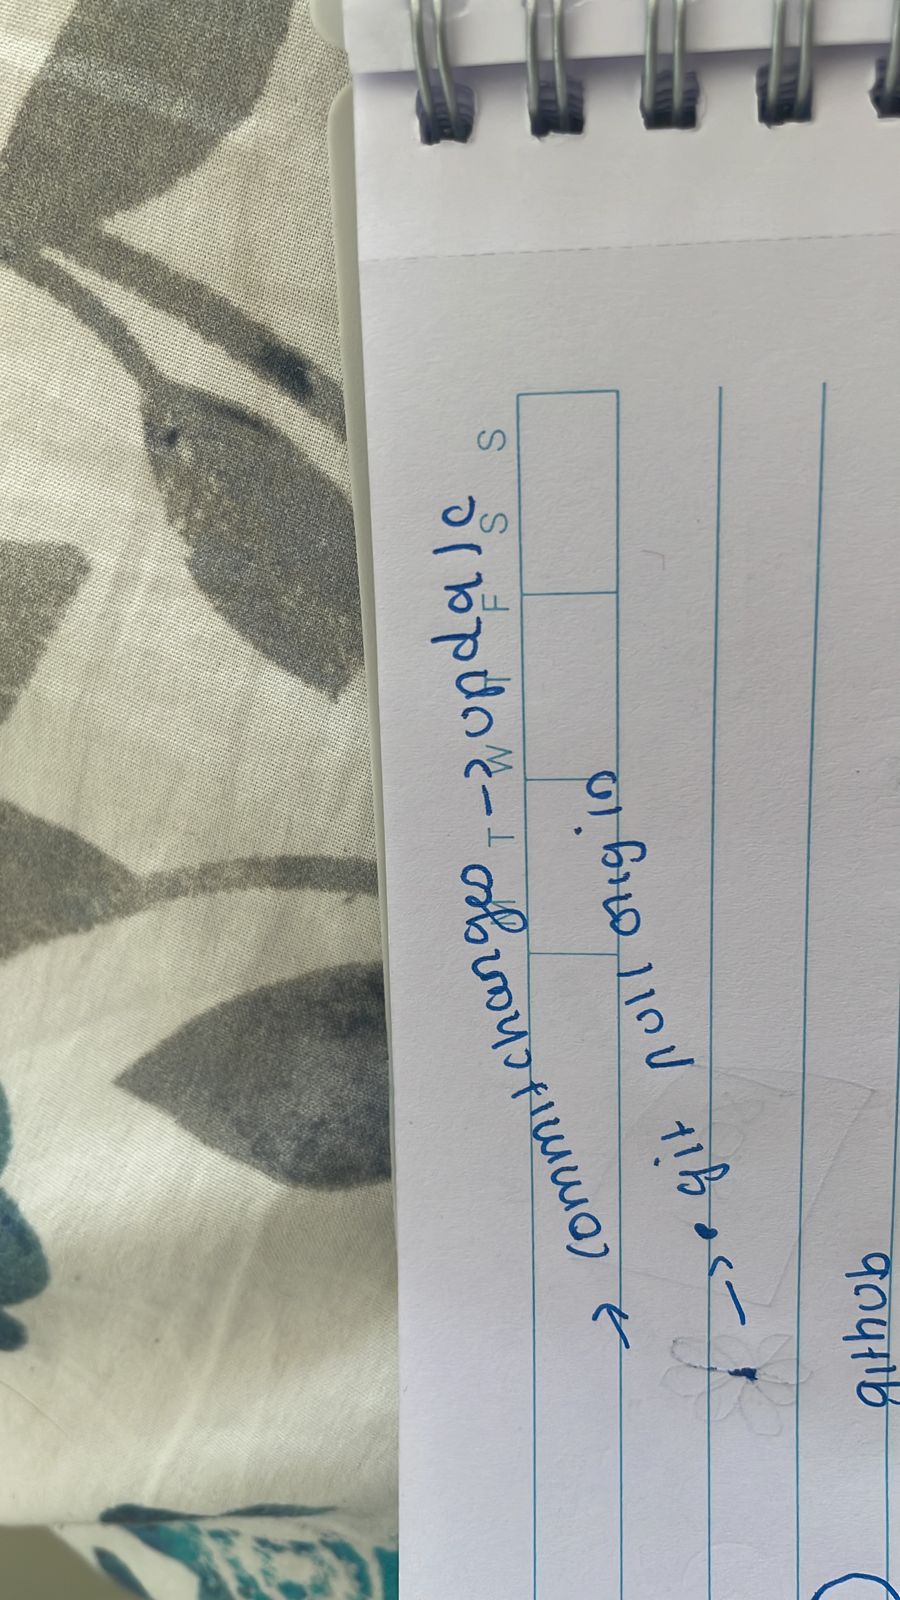 M T W T F S S
→ commit changes → update
→ • git pull origin
github